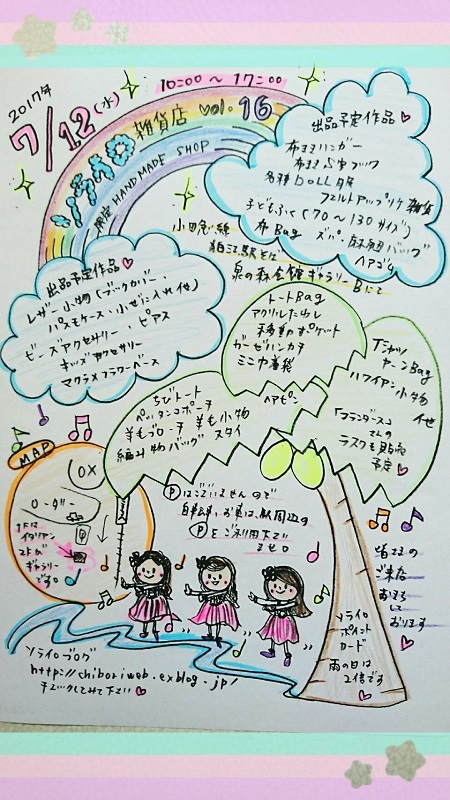 2017年
7/12(水)
10:00〜17:00
ソライロ雑貨店 vol.16
限定 HAND MADE SHOP
出品予定作品
布ヨーヨーハンガー
各種DOLL服
フェルトアップリケ雑貨
子どもふく(70〜130サイズ)
布Bag
ヘアゴム
小田急線
狛江駅そば
泉の森会館ギャラリーBにて
出品予定作品
レザー小物(ブックカバー、
パスモケース・小ぜに入れ 他)
ビーズアクセサリー・ピアス
キッズアクセサリー
マクラメフラワーベース
トートBag
アクリルたわし
移動ポケット
ガーゼハンカチ
ミニ巾着袋
Tシャツ
ヤーンBag
ハワイアン小物
他
「フランダース」
さんの
ラスクも販売
予定
ちびトート
ペッタンコポーチ
羊毛ブローチ 羊毛小物
編み物バッグ スタイ
ヘアピン
MAP
OX
ローダー
P
イタリアン
ギャラリー
です。
Pはございませんので
自転車、お車は、駅周辺の
Pをご利用下さい
ませ。
皆さまの
ご来店
お待ち
して
おります
ソライロ
ポイント
カード
雨の日は
2倍です
ソライロブログ
http://chiboriweb.exblog.jp/
チェックしてみて下さい